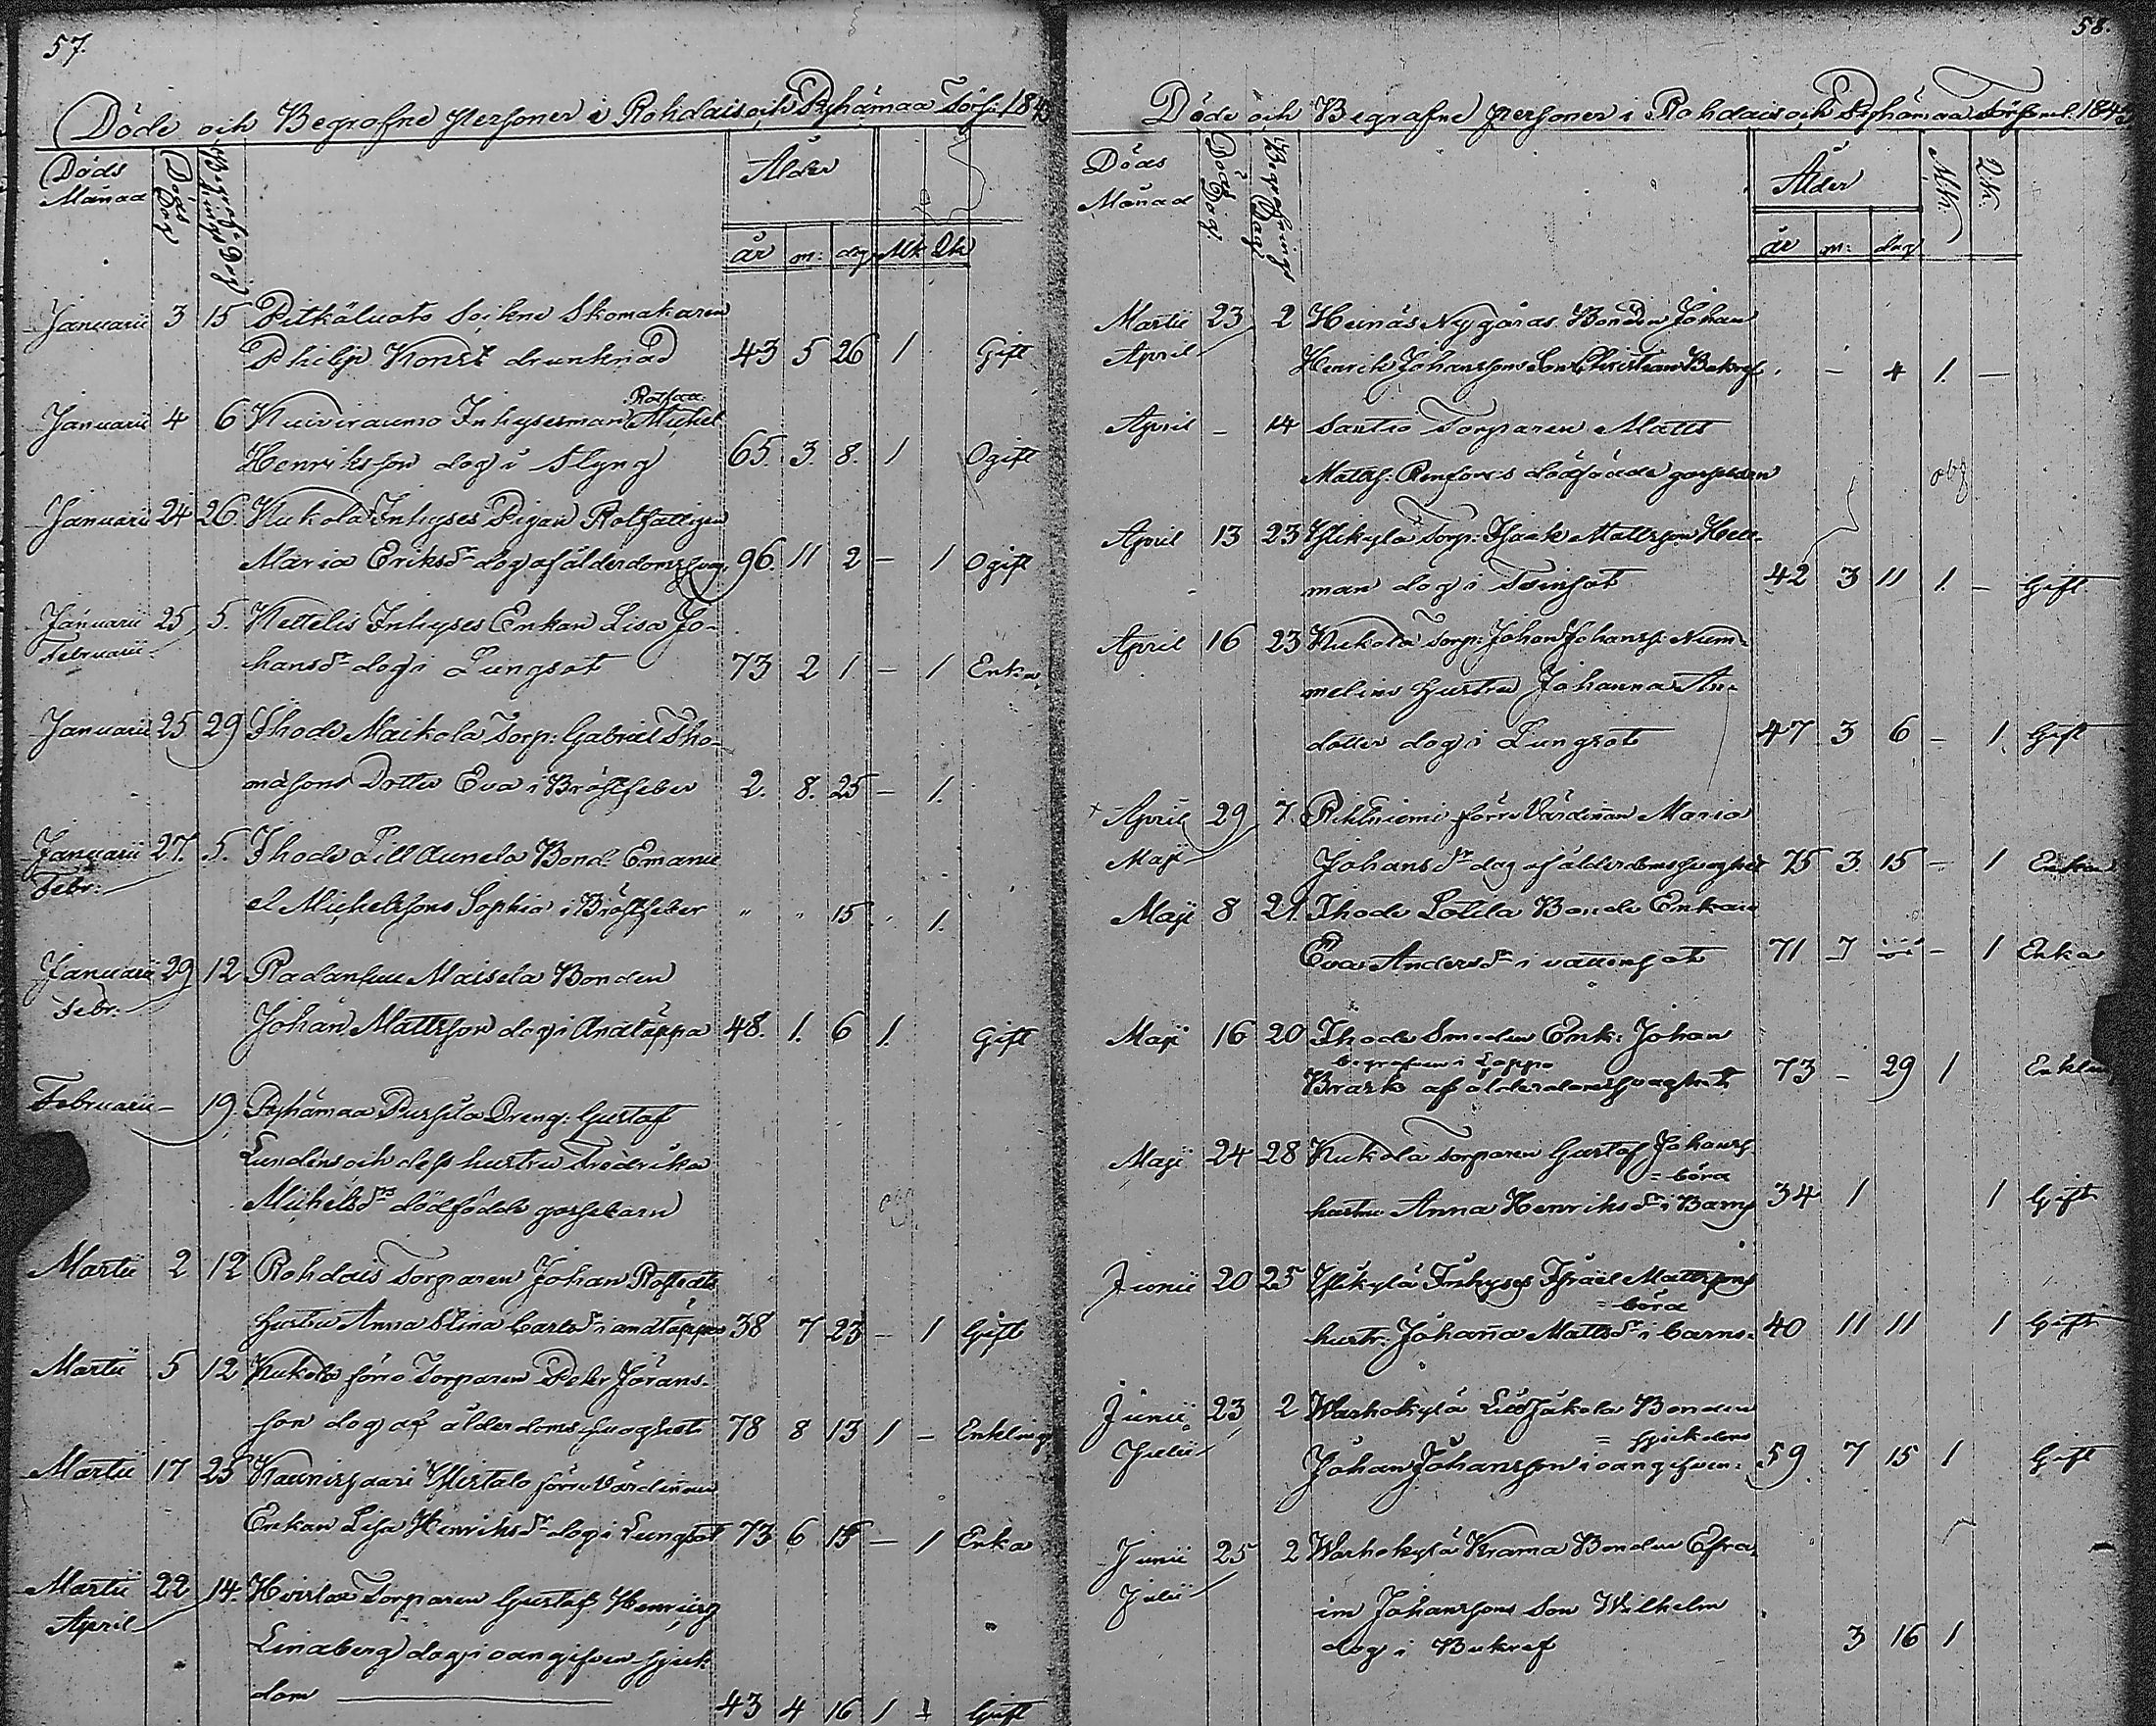 57.
Döde och Begrafne Personer i Rohdais och Pyhämaa Förs: 184
Döds Månad Döds Dag Begrafnings Dag Ålder
år m: dag Mk Qk
Januarii 3 15 Pitkäluoto Sockne Skomakaren
Philip Konst drunknad 43 5 26 1 Gift
Rotfatt:
Januarii 4 6 Kuiviraumo Inhysesman Michel
Henriksson dog i Styng 65. 3. 8. 1 Ogift
Januarii 24 26. Kukola Inhyses Pigan Rotfattigen
Maria Eriksdr dog af ålderdomssvag. 96. 11 2 – 1 Ogift
Januarii 25 5. Kettelis Inhyses Enkan Lisa Jo-
Februarii hansdr dog i Lungsot 73 2 1 – 1 Enka
Januarii 25 29 Ihode Maikola Torp: Gabriel Tho-
massons Dotter Eva i Bröstfeber 2. 8. 25 – 1.
Januarii 27. 5. Ihode Lill Aunela Bond: Emanu
Febr: el Michelssons Sophia i Bröstfeber " " 15 . 1.
Januarii 29 12 Radansuu Maisela Bonden
Febr: Johan Mattsson dog i Andtäppa 48. 1. 6 1. Gift
Februarii – 19 Pyhämaa Pursila Dreng: Gustaf
Lundens och dess hustru Fredrika
Michelsdrs dödfödde gossebarn
Martii 2 12 Rohdais Torparen Johan Rostedts
hustru Anna Stina Carlsdr i andtäppa 38 7 23 – 1 Gift
Martii 5 12 Kukola förre Torparen Peter Jörans-
son dog af ålderdomssvaghet 78 8 13 1 – Enkling
Martii 17 25 Kaunissaari Ylistalo förre Värdinnan
Enkan Lisa Henriksdr dog i Lungsot 73 6 15 – 1 Enka
Martii 22 14. Hirslax Torparen Gustaf Henrics:
April Lindberg dog i oangifven sjuk-
dom 43 4 16 1 1 Gift
58.
Döde och Begrafne personer i Rohdais och Pyhämaa Församl. 184
Döds Månad Döds Dag. Begrafnings Dag Ålder Mk. Qk.
år m: dag
Martii 23 2 Heinäs Nygårds Bonden Johan
April Henrik Johanssons Son Christian Bukref . – 4 1. –
April – 14 Santio Torparen Matts
Matts: Renfors dödfödde gossebarn
April 13 23 Ylikylä Torp: Isaak Mattsson Hell-
man dog i Tvinsot 42 3 11 1. – Gift
April 16 23 Kukola Torp: Johan Johanss: Num-
melins hustru Johanna An-
dotter dog i Lungsot 47 3 6 – 1. Gift
+ April 29 7. Rihtniemi förre Värdinnan Maria
Maji Johansdr dog af ålderdomssvaghet 75 3. 15 – 1 Enka
Maji 8 21. Ihode Lolila Bonde Enkan
Eva Andersdr i vattensot 71 7 – – 1 Enka
Maji 16 20 Ihode Smeden Enk: Johan
begrafven i Lappo
Brask af ålderdomssvaghet 73 – 29 1 Enkling
Maji 24 28 Kukola Torparen Gustaf Johanss:
= börd
hustru Anna Henriksdr i Barns 34 1 1 Gift
Junii 20 25 Ylikylä Inhyses Israel Mattssons
= börd
hustr: Johanna Mattsdr i barns- 40 11 11 1 Gift
Junii 23 2 Warhokylä Lill Jäkola Bonden
= sjukdom
Julii Johan Johansson i oangifven 59 7 15 1 Gift
Junii 25 2 Warhokylä Krama Bonden Efra-
Julii im Johanssons Son Wilhelm
dog i Bukref 3 16 1